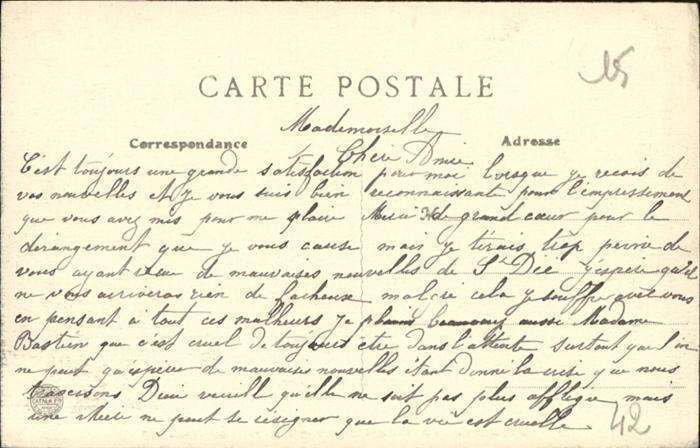 15
CARTE POSTALE
Mademoiselle
Correspondance
Adresse
Chère Amie
C'est toujours une grande satisfaction pour moi lorsque je reçois de
vos nouvelles et je vous suis bien reconnaissante pour l'empressement
que vous avez mis pour me plaire Merci de grand cœur pour le
dérangement que je vous cause mais je trop peinée de
vous ayant de mauvaises nouvelles de St Dié j'espère qu'il
ne vous arriveras rien de facheux malgré cela je souffre avec vous
en pensant à tout ces malheurs je plains beaucoup aussi Madame
Bastien que c'est cruel de toujours être dans l'attente surtout que l'on
ne peut qu'espérer de mauvaises nouvelles étant donné la crise que nous
Dieu veuille qu'elle ne soit pas plus affligée mais
une mère ne peut se résigner que la vie est cruelle
42